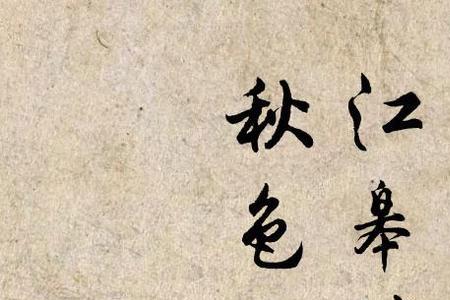 江皋
秋色